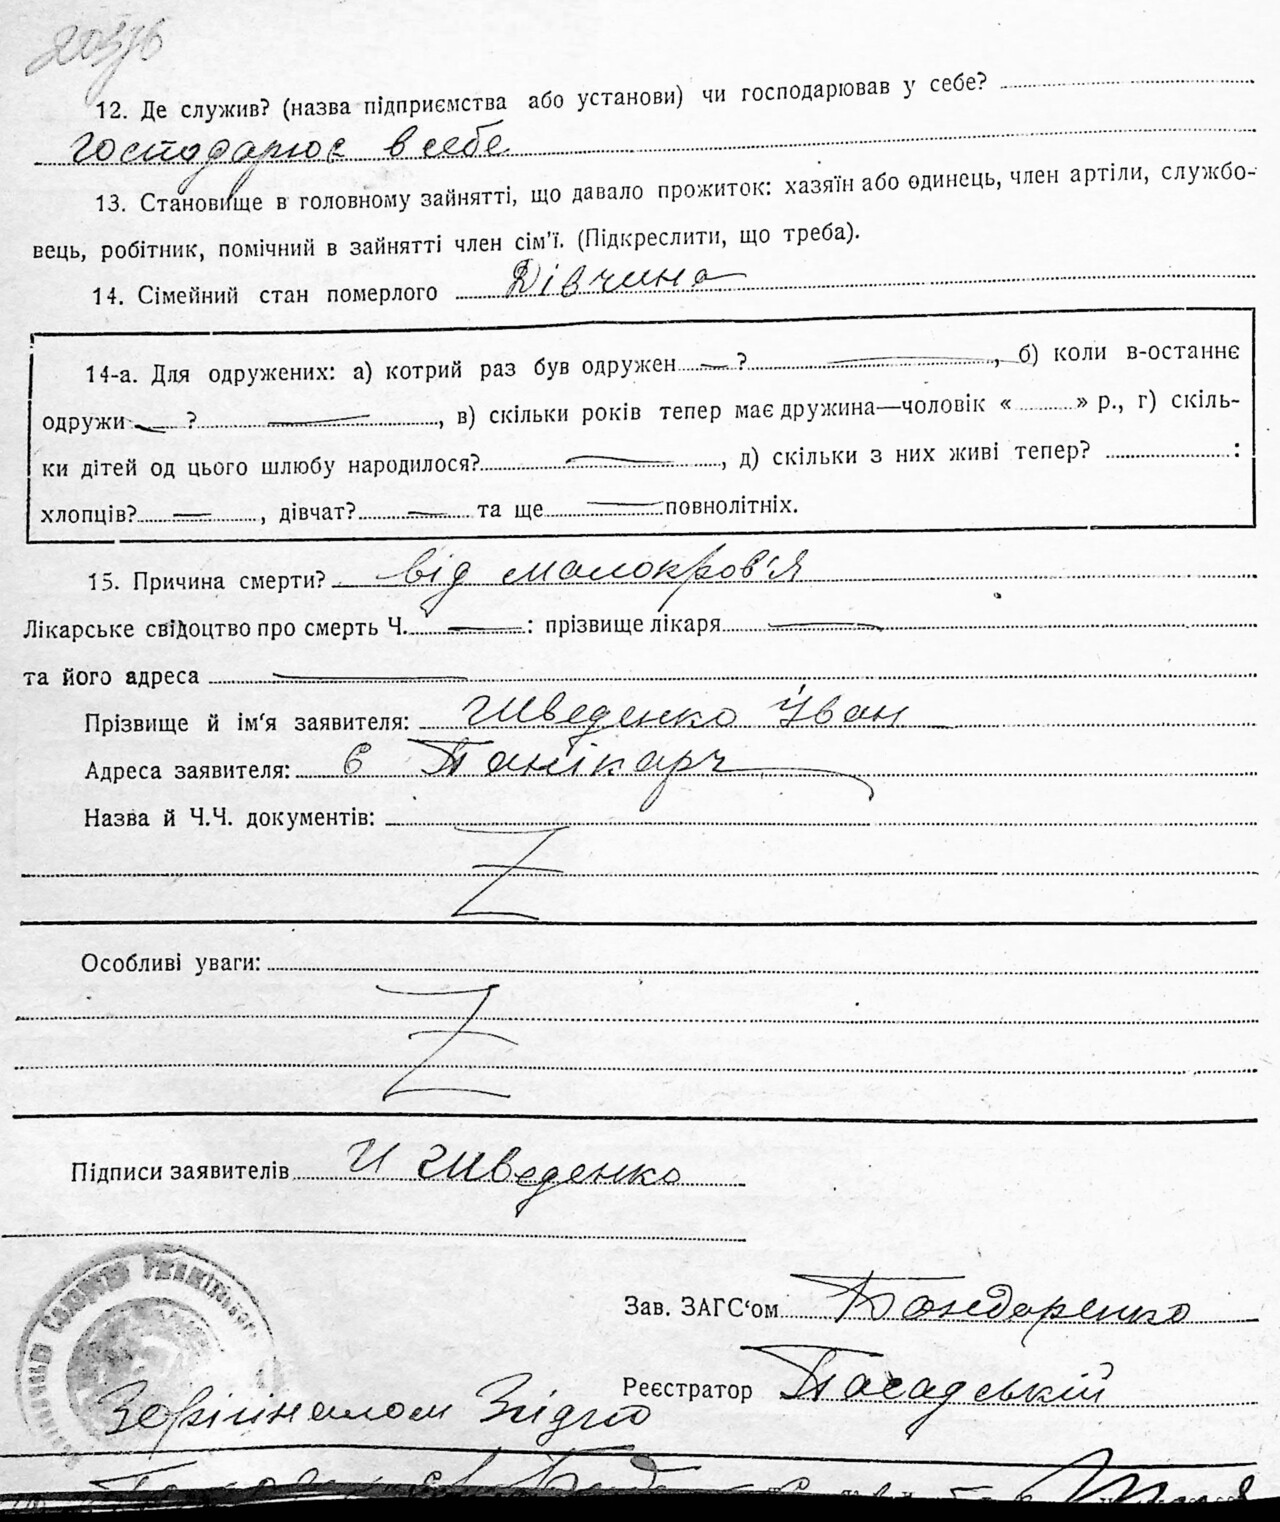 12. Де служив? (назва підприємства або установи) чи господарював у себе?
господарює в себе
13. Становище в головному зайнятті, що давало прожиток: хазяїн або одинець, член артілі, службо-
вець, робітник, помічний в зайнятті член сім'ї. (Підкреслити, що треба).
14. Сімейний стан померлого Дівчина
14-а. Для одружених: а) котрий раз був одружен — ? —, б) коли в-останнє
одружи — ? —, в) скільки років тепер має дружина—чоловік « » р., г) скіль-
ки дітей од цього шлюбу народилося? —, д) скільки з них живі тепер? :
хлопців? —, дівчат? — та ще — повнолітніх.
15. Причина смерти? від малокров'я
Лікарське свідоцтво про смерть Ч. — : прізвище лікаря —
та його адреса —
Прізвище й ім'я заявителя: Шведенко Іван
Адреса заявителя: с
Назва й Ч.Ч. документів:
Z
Особливі уваги:
Z
Підписи заявителів И Шведенко
Зав. ЗАГС'ом Бондаренко
Реєстратор Посадський
З оригіналом Згідно